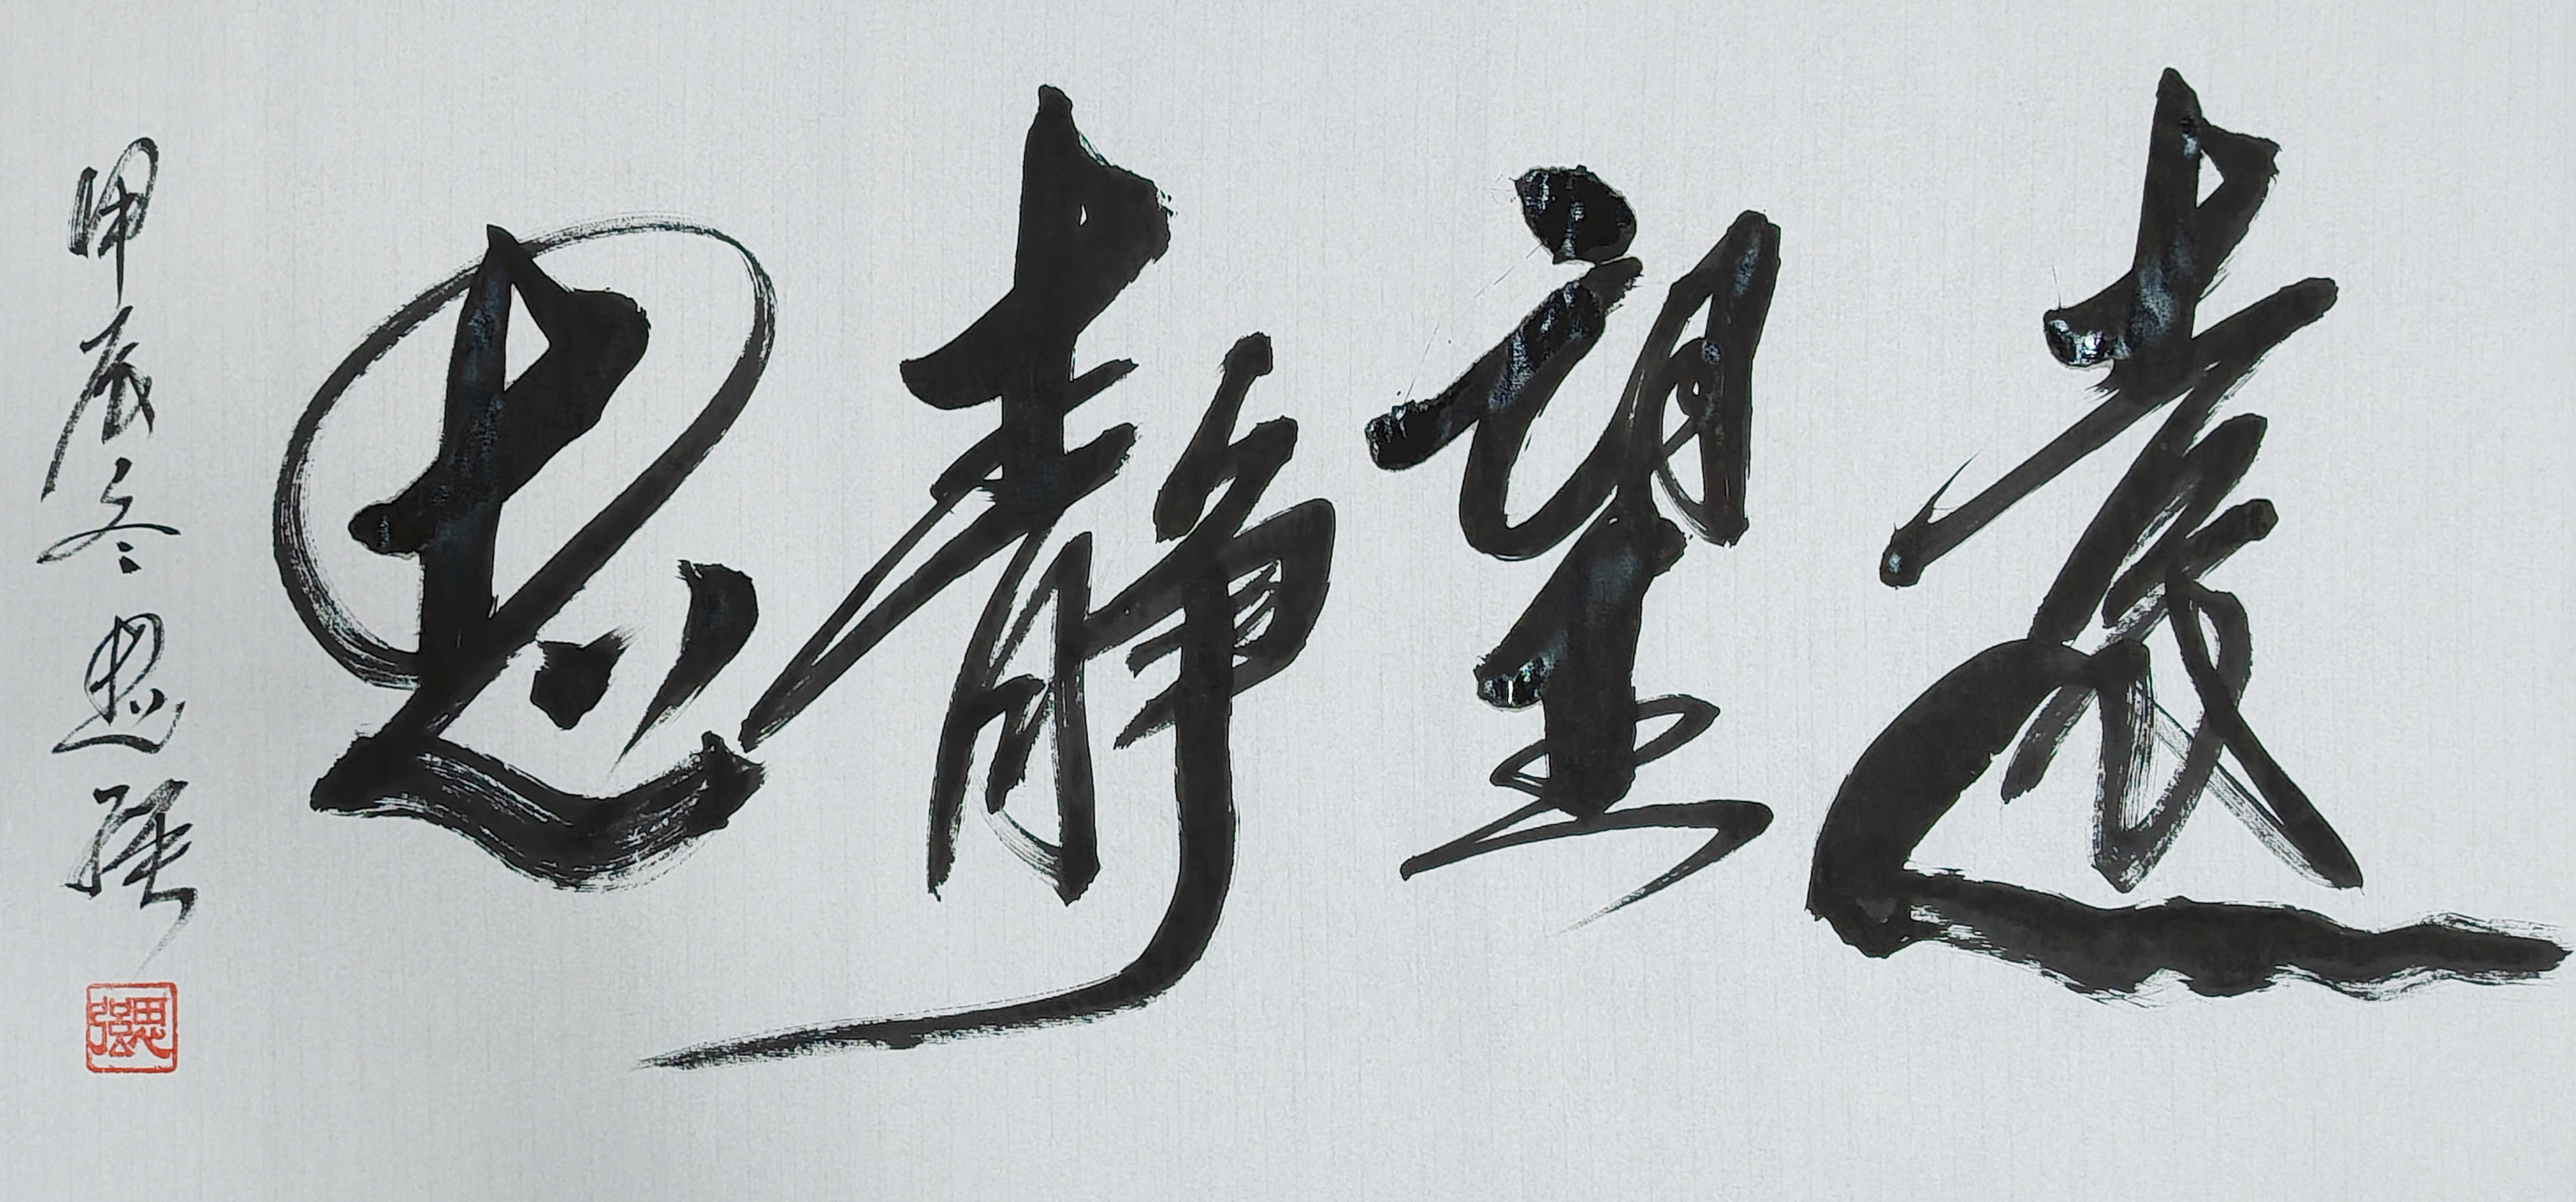 遠望靜思
甲辰冬思强
思強